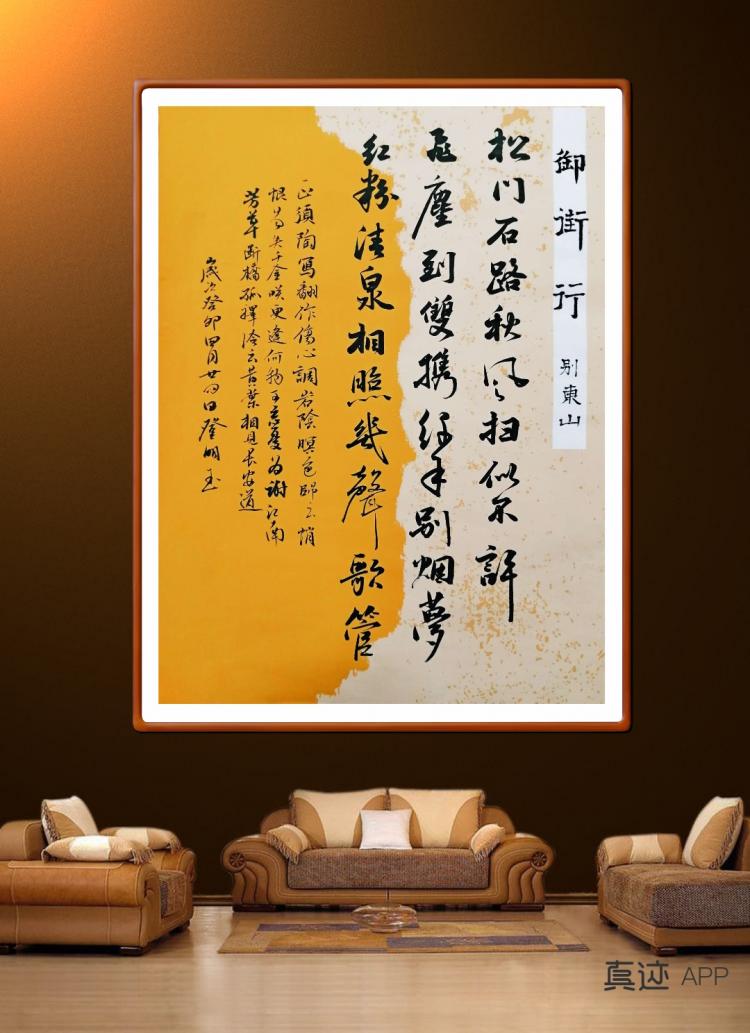 御街行 别東山
松门石路秋风扫似不許
飛塵到雙携纤手别烟夢
红粉清泉相照幾聲歌管
正須陶寫翻作傷心調岩陰暝色歸云悄
恨易失千金咲更逢何物可忘憂为謝江南
芳草断橋孤驛冷云黄葉相見长安道
歲次癸卯四月廿四日登明玉
真迹 APP